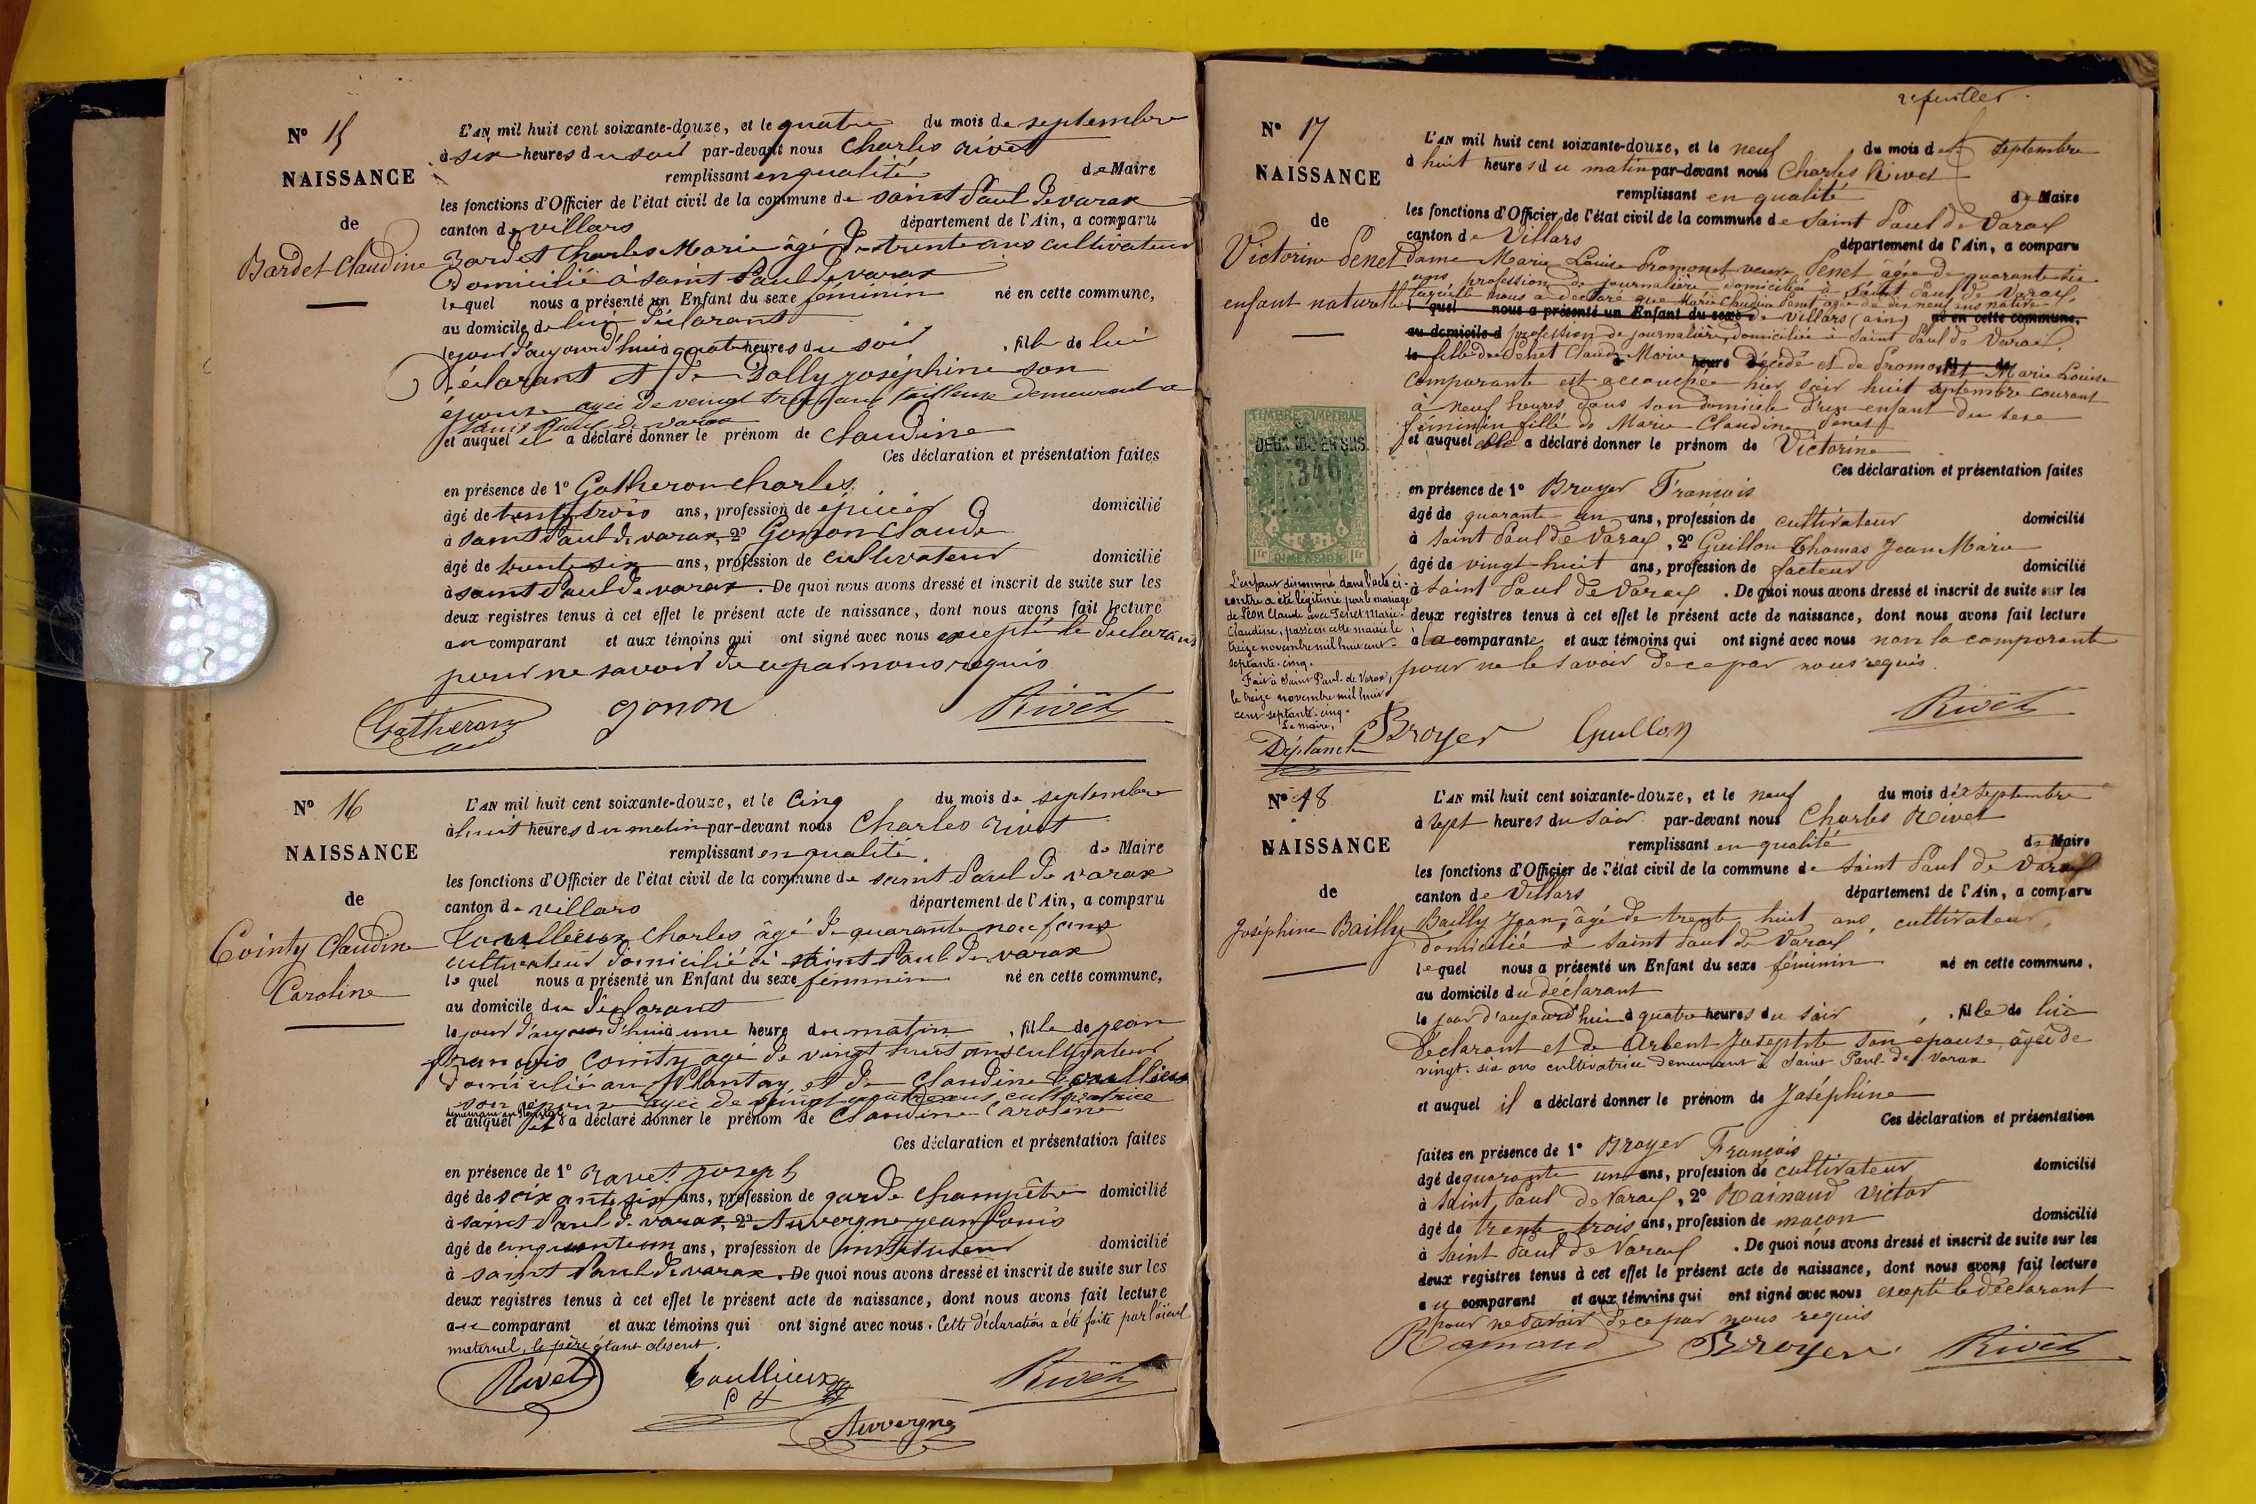 N° 15
NAISSANCE
de
Bardet Claudine
L'AN mil huit cent soixante-douze, et le quatre du mois de septembre
à six heures du soir par-devant nous Charles Rivet
remplissant en qualité de Maire
les fonctions d'Officier de l'état civil de la commune de saint Paul de varax
canton de villars département de l'Ain, a comparu
Bardet Charles Marie âgé de trente ans cultivateur
Domicilié à saint Paul de varax
lequel nous a présenté un Enfant du sexe féminin né en cette commune,
au domicile de lui déclarant
le jour d'aujourd'hui à quatre heures du soir, fille de lui
déclarant et de Dolly joséphine son
épouse agée de veingt trois ans tailleuse demeurant a
saint Paul de varax
et auquel il a déclaré donner le prénom de Claudine
Ces déclaration et présentation faites
en présence de 1° Gatheron Charles
âgé de trente trois ans, profession de épicier domicilié
à saint Paul de varax, 2° Gonon Claude
âgé de trente six ans, profession de cultivateur domicilié
à saint Paul de varax. De quoi nous avons dressé et inscrit de suite sur les
deux registres tenus à cet effet le présent acte de naissance, dont nous avons fait lecture
au comparant et aux témoins qui ont signé avec nous excepté le déclarant
pour ne savoir de ce par nous requis
Gatheron Gonon Rivet
N° 16
NAISSANCE
de
Cointy Claudine
Caroline
L'AN mil huit cent soixante-douze, et le cinq du mois de septembre
à huit heures du matin par-devant nous Charles Rivet
remplissant en qualité de Maire
les fonctions d'Officier de l'état civil de la commune de saint Paul de varax
canton de villars département de l'Ain, a comparu
Charles âgé de quarante neuf ans
cultivateur domicilié à saint Paul de varax
le quel nous a présenté un Enfant du sexe féminin né en cette commune,
au domicile du déclarant
le jour d'aujourd'hui à une heure du matin, fille de jean
françois Cointy agé de vingt huit ans cultivateur
domicilié au Plantay et de Claudine
son épouse agée de vingt quatre ans cultivatrice
demeurant au Plantay
et auquel il a déclaré donner le prénom de Claudine Caroline
Ces déclaration et présentation faites
en présence de 1° Ravet joseph
âgé de soixante six ans, profession de garde champêtre domicilié
à saint Paul de varax, 2° Auvergne jean Louis
âgé de cinquante un ans, profession de instituteur domicilié
à saint Paul de varax. De quoi nous avons dressé et inscrit de suite sur les
deux registres tenus à cet effet le présent acte de naissance, dont nous avons fait lecture
au comparant et aux témoins qui ont signé avec nous. Cette déclaration a été faite par l'aïeul
maternel, le père étant absent.
Ravet Rivet
Auvergne
2e feuillet
N° 17
NAISSANCE
de
Victorine Penet
enfant naturelle
TIMBRE IMPÉRIAL
DEUX DIX. EN SUS.
346
1fr DIMENSION 1fr
L'enfant dénommé dans l'acte ci-
contre a été légitimé par le mariage
de Léon Claude avec Penet Marie-
Claudine, passé en cette mairie le
treize novembre mil huit cent-
septante-cinq.
Fait à Saint Paul-de Varax,
le treize novembre mil huit
cent septante-cinq.
Le maire,
Déplanche
L'AN mil huit cent soixante-douze, et le neuf du mois de septembre
à huit heures du matin par-devant nous Charles Rivet
remplissant en qualité de Maire
les fonctions d'Officier de l'état civil de la commune de Saint Paul de Varax
canton de Villars département de l'Ain, a comparu
Dame Marie Louise Promonet veuve Penet âgée de quarante six
ans profession de journalière, domiciliée à Saint Paul de Varax,
laquelle nous a déclaré que Marie Claudine Penet âgée de dix neuf ans native
lequel nous a présenté un Enfant du sexe de Villars (ain) né en cette commune,
au domicile d profession de journalière, domiciliée à Saint Paul de Varax
le fille de Penet Claude Marie à heure décédé et de Promonet fil de Marie Louise
comparante est accouchée hier soir huit septembre courant
à neuf heures dans son domicile d'un enfant du sexe
féminin fille de Marie Claudine Penet
et auquel elle a déclaré donner le prénom de Victorine
Ces déclaration et présentation faites
en présence de 1° Broyer François
âgé de quarante un ans, profession de cultivateur domicilié
à Saint Paul de Varax, 2° Guillon Thomas Jean Marie
âgé de vingt huit ans, profession de facteur domicilié
à Saint Paul de Varax. De quoi nous avons dressé et inscrit de suite sur les
deux registres tenus à cet effet le présent acte de naissance, dont nous avons fait lecture
à la comparante et aux témoins qui ont signé avec nous non la comparante
pour ne le savoir de ce par nous requis.
Broyer Guillon Rivet
N° 18
NAISSANCE
de
Joséphine Bailly
L'AN mil huit cent soixante-douze, et le neuf du mois de septembre
à sept heures du soir par-devant nous Charles Rivet
remplissant en qualité de Maire
les fonctions d'Officier de l'état civil de la commune de Saint Paul de Varax
canton de Villars département de l'Ain, a comparu
Bailly Jean, âgé de trente huit ans, cultivateur,
domicilié à Saint Paul de Varax
lequel nous a présenté un Enfant du sexe féminin né en cette commune,
au domicile du déclarant
le jour d'aujourd'hui à quatre heures du soir, fille de lui
déclarant et de Arbent Josephte son épouse âgée de
vingt-six ans cultivatrice demeurant à Saint Paul-de Varax
et auquel il a déclaré donner le prénom de Joséphine
Ces déclaration et présentation
faites en présence de 1° Broyer François
âgé de quarante un ans, profession de cultivateur domicilié
à Saint Paul de Varax, 2° Rainaud Victor
âgé de trente trois ans, profession de maçon domicilié
à Saint Paul de Varax. De quoi nous avons dressé et inscrit de suite sur les
deux registres tenus à cet effet le présent acte de naissance, dont nous avons fait lecture
au comparant et aux témoins qui ont signé avec nous excepté le déclarant
pour ne savoir de ce par nous requis
Rainaud Broyer Rivet